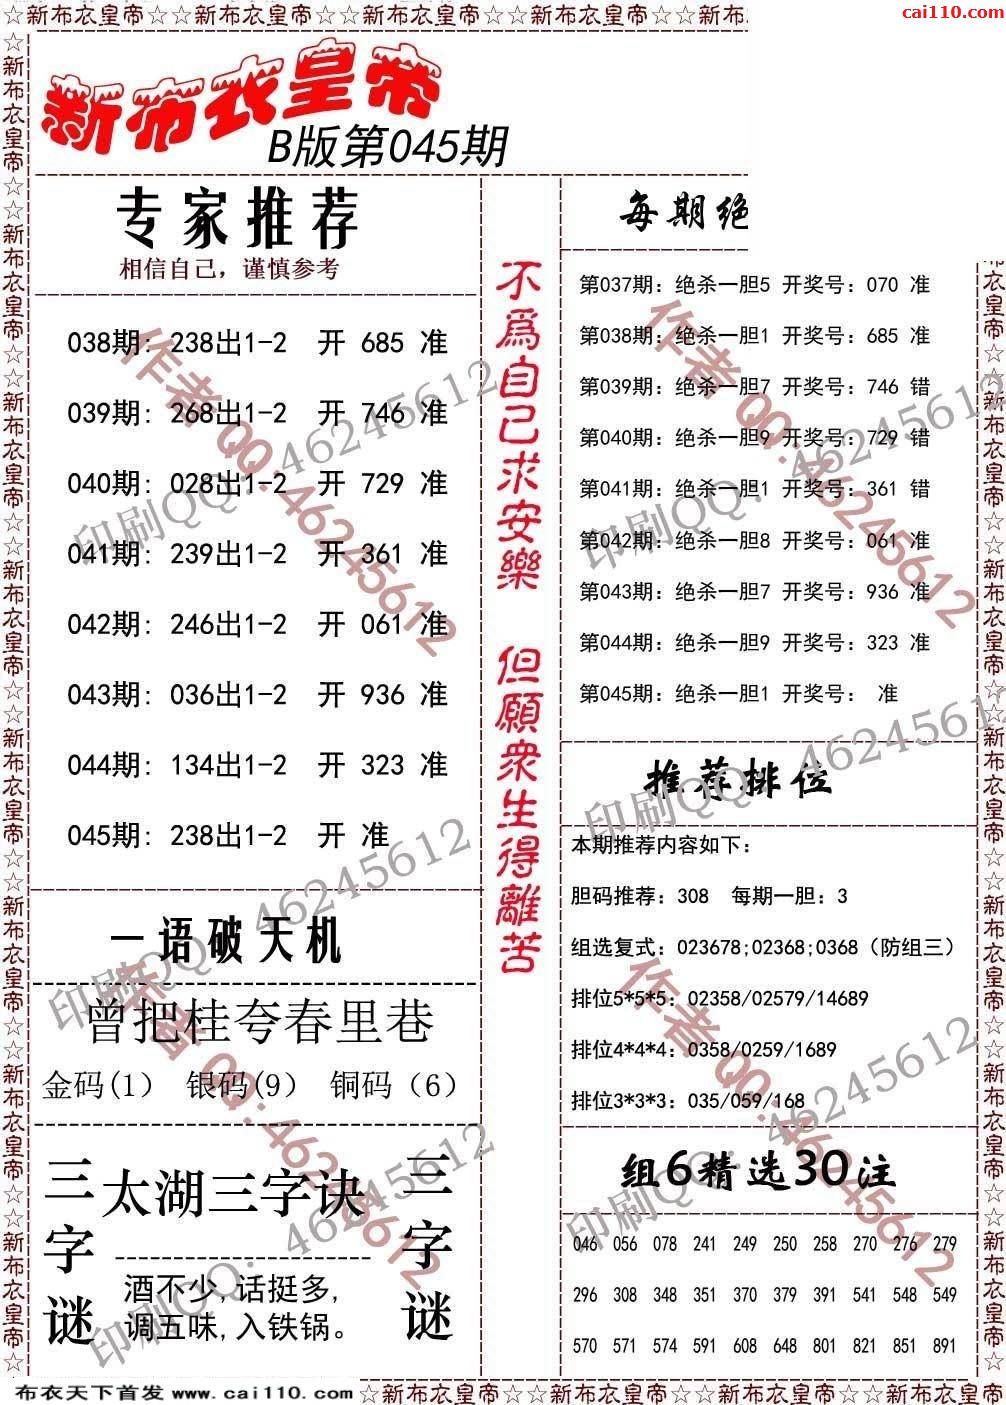 ☆新布衣皇帝☆☆新布衣皇帝☆☆新布衣皇帝☆☆新布衣皇帝☆☆新布
cai110.com
新布衣皇帝
B版第045期
专家推荐
相信自己，谨慎参考
038期: 238出1-2 开 685 准
039期: 268出1-2 开 746 准
040期: 028出1-2 开 729 准
041期: 239出1-2 开 361 准
042期: 246出1-2 开 061 准
043期: 036出1-2 开 936 准
044期: 134出1-2 开 323 准
045期: 238出1-2 开 准
一语破天机
曾把桂夸春里巷
金码(1) 银码(9) 铜码（6）
三字谜
太湖三字诀
酒不少,话挺多,
调五味,入铁锅。
三字谜
不為自己求安樂 但願衆生得離苦
每期绝
第037期: 绝杀一胆5 开奖号: 070 准
第038期: 绝杀一胆1 开奖号: 685 准
第039期: 绝杀一胆7 开奖号: 746 错
第040期: 绝杀一胆9 开奖号: 729 错
第041期: 绝杀一胆1 开奖号: 361 错
第042期: 绝杀一胆8 开奖号: 061 准
第043期: 绝杀一胆7 开奖号: 936 准
第044期: 绝杀一胆9 开奖号: 323 准
第045期: 绝杀一胆1 开奖号: 准
推荐排位
本期推荐内容如下:
胆码推荐: 308 每期一胆: 3
组选复式: 023678;02368;0368（防组三）
排位5*5*5: 02358/02579/14689
排位4*4*4: 0358/0259/1689
排位3*3*3: 035/059/168
组6精选30注
046 056 078 241 249 250 258 270 276 279
296 308 348 351 370 379 391 541 548 549
570 571 574 591 608 648 801 821 851 891
作者QQ:46245612
印刷QQ:46245612
作者QQ:46245612
印刷QQ:46245612
印刷QQ:46245612
印刷QQ:46245612
作者QQ:46245612
印刷QQ:46245612
作者QQ:46245612
印刷QQ:46245612
布衣天下首发 www.cai110.com
☆新布衣皇帝☆☆新布衣皇帝☆☆新布衣皇帝☆☆新布衣皇帝☆
☆新布衣皇帝☆☆新布衣皇帝☆☆新布衣皇帝☆☆新布衣皇帝☆☆新布衣皇帝☆☆新布衣皇帝☆☆新布衣皇帝☆☆新布衣皇帝☆
衣皇帝☆☆新布衣皇帝☆☆新布衣皇帝☆☆新布衣皇帝☆☆新布衣皇帝☆☆新布衣皇帝☆☆新布衣皇帝☆